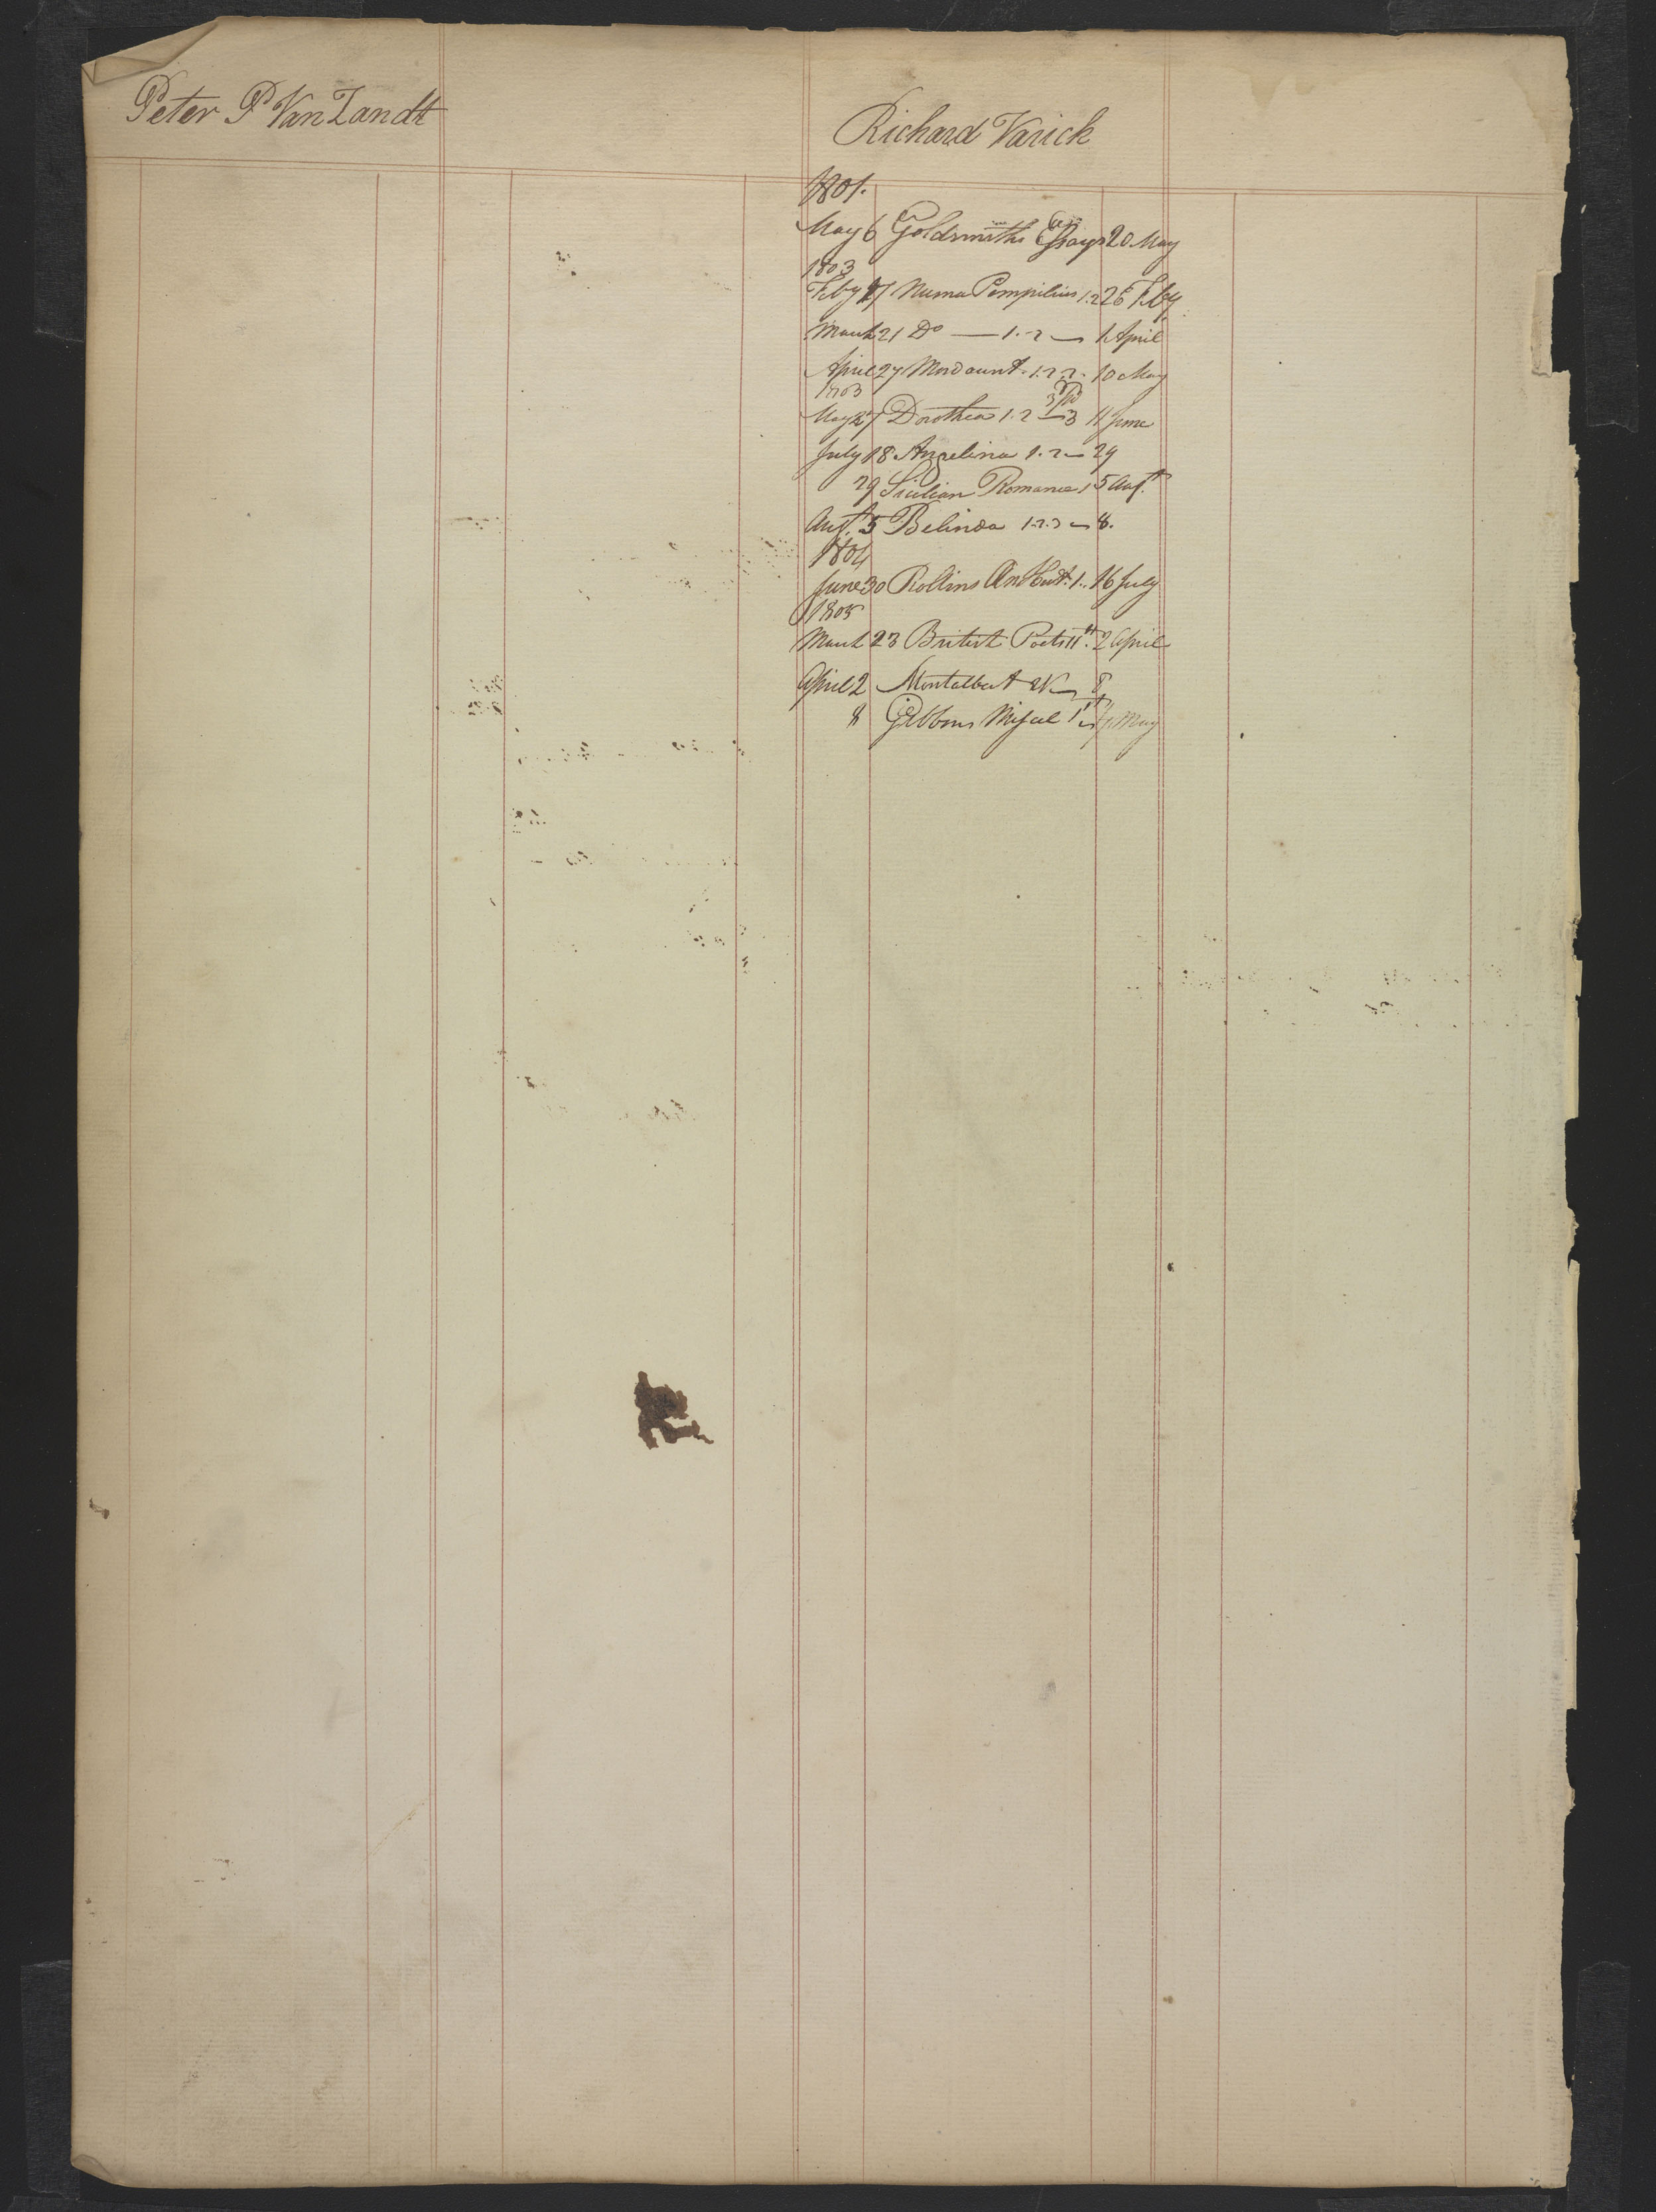 Peter P Van Zandt
Richard Varick
1801.
May 6 Goldsmiths Essays 20 May
1803
Feby 17 Numa Pompilius 1.2 26 Feby
March 21 Do — 1.2 — 1 April
April 27 Mordaunt. 1.2.3. 10 May
1803
May 27 Dorothea 1.2 — 3 11 June
July 18 Angelina 1.2 — 29
29 Sicilian Romance 1 5 Augt.
Augt. 5 Belinda 1.2.3 — 8.
1804
June 30 Rollins An Hist. 1.. 16 July
1805
March 23 British Poets 11th. 2 April
April 2 Montalbert 2V — 8
8 Gibbons Miscel 1st — May